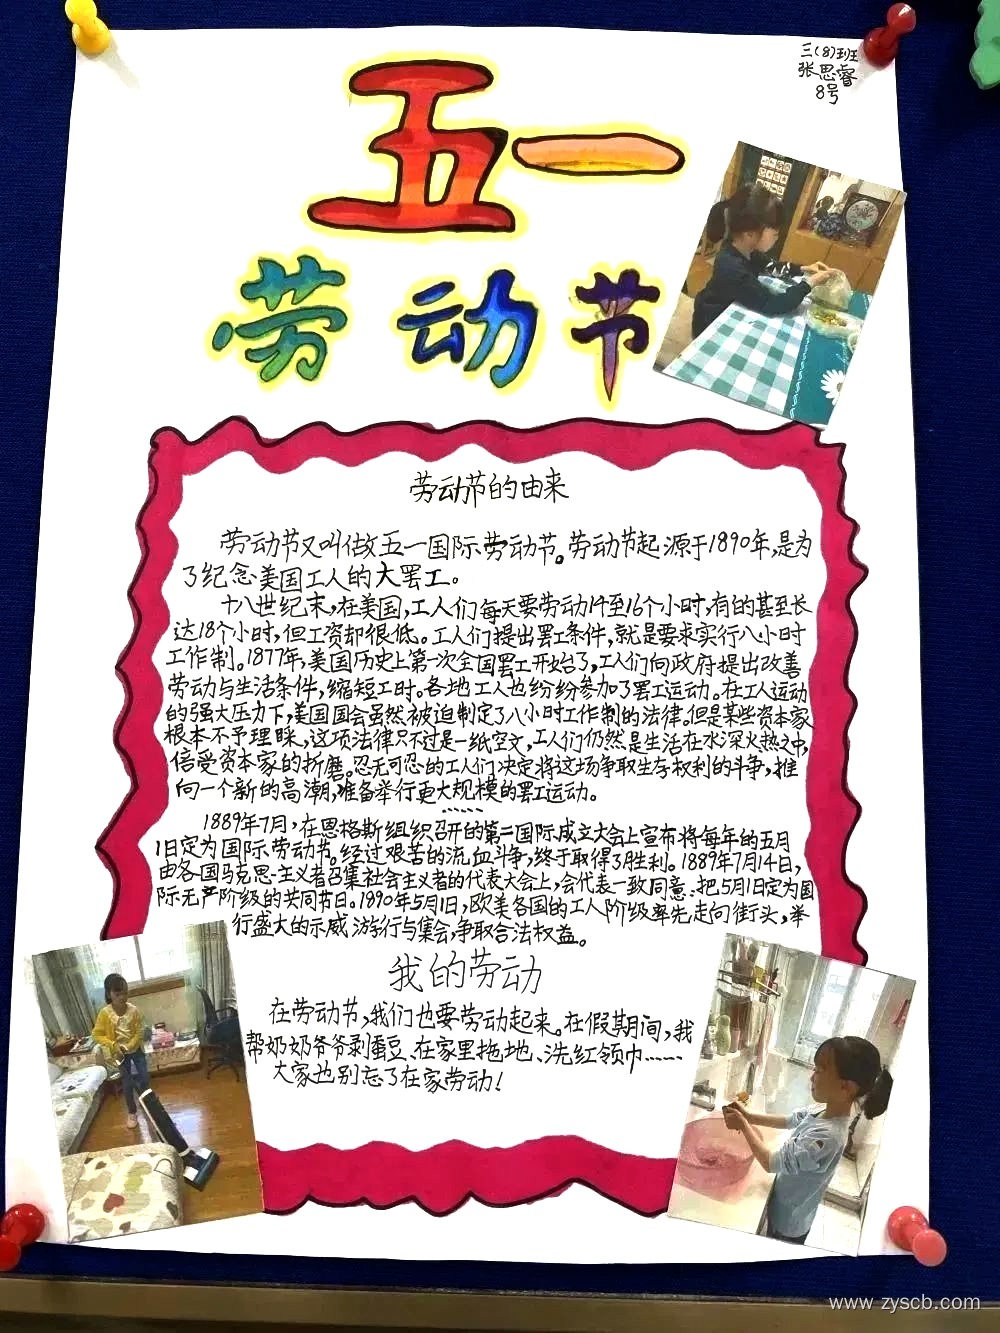 三(8)班
张思睿
8号
五一
劳动节
劳动节的由来
劳动节又叫做五一国际劳动节。劳动节起源于1890年,是为
了纪念美国工人的大罢工。
十八世纪末,在美国,工人们每天要劳动14至16个小时,有的甚至长
达18个小时,但工资却很低。工人们提出罢工条件,就是要求实行八小时
工作制。1877年,美国历史上第一次全国罢工开始了,工人们向政府提出改善
劳动与生活条件,缩短工时。各地工人也纷纷参加了罢工运动。在工人运动
的强大压力下,美国国会虽然被迫制定了八小时工作制的法律。但是某些资本家
根本不予理睬,这项法律只不过是一纸空文,工人们仍然是生活在水深火热之中,
倍受资本家的折磨。忍无可忍的工人们决定将这场争取生存权利的斗争,推
向一个新的高潮,准备举行更大规模的罢工运动。
……
1889年7月,在恩格斯组织召开的第二国际成立大会上宣布将每年的五月
1日定为国际劳动节。经过艰苦的流血斗争,终于取得了胜利。1889年7月14日,
由各国马克思主义者召集社会主义者的代表大会上,会代表一致同意:把5月1日定为国
际无产阶级的共同节日。1890年5月1日,欧美各国的工人阶级率先走向街头,举
行盛大的示威游行与集会,争取合法权益。
我的劳动
在劳动节,我们也要劳动起来。在假期间,我
帮奶奶爷爷剥蚕豆、在家里拖地、洗红领巾……
大家也别忘了在家劳动!
www.zyscb.com